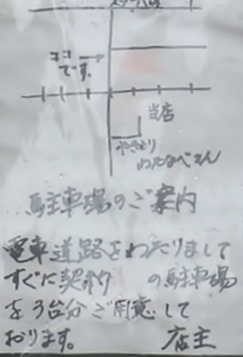 ココ
です。
当店
やきとり
わたなべさん
駐車場のご案内
電車道路をわたりまして
すぐに契約 の駐車場
を3台分ご用意して
おります。 店主